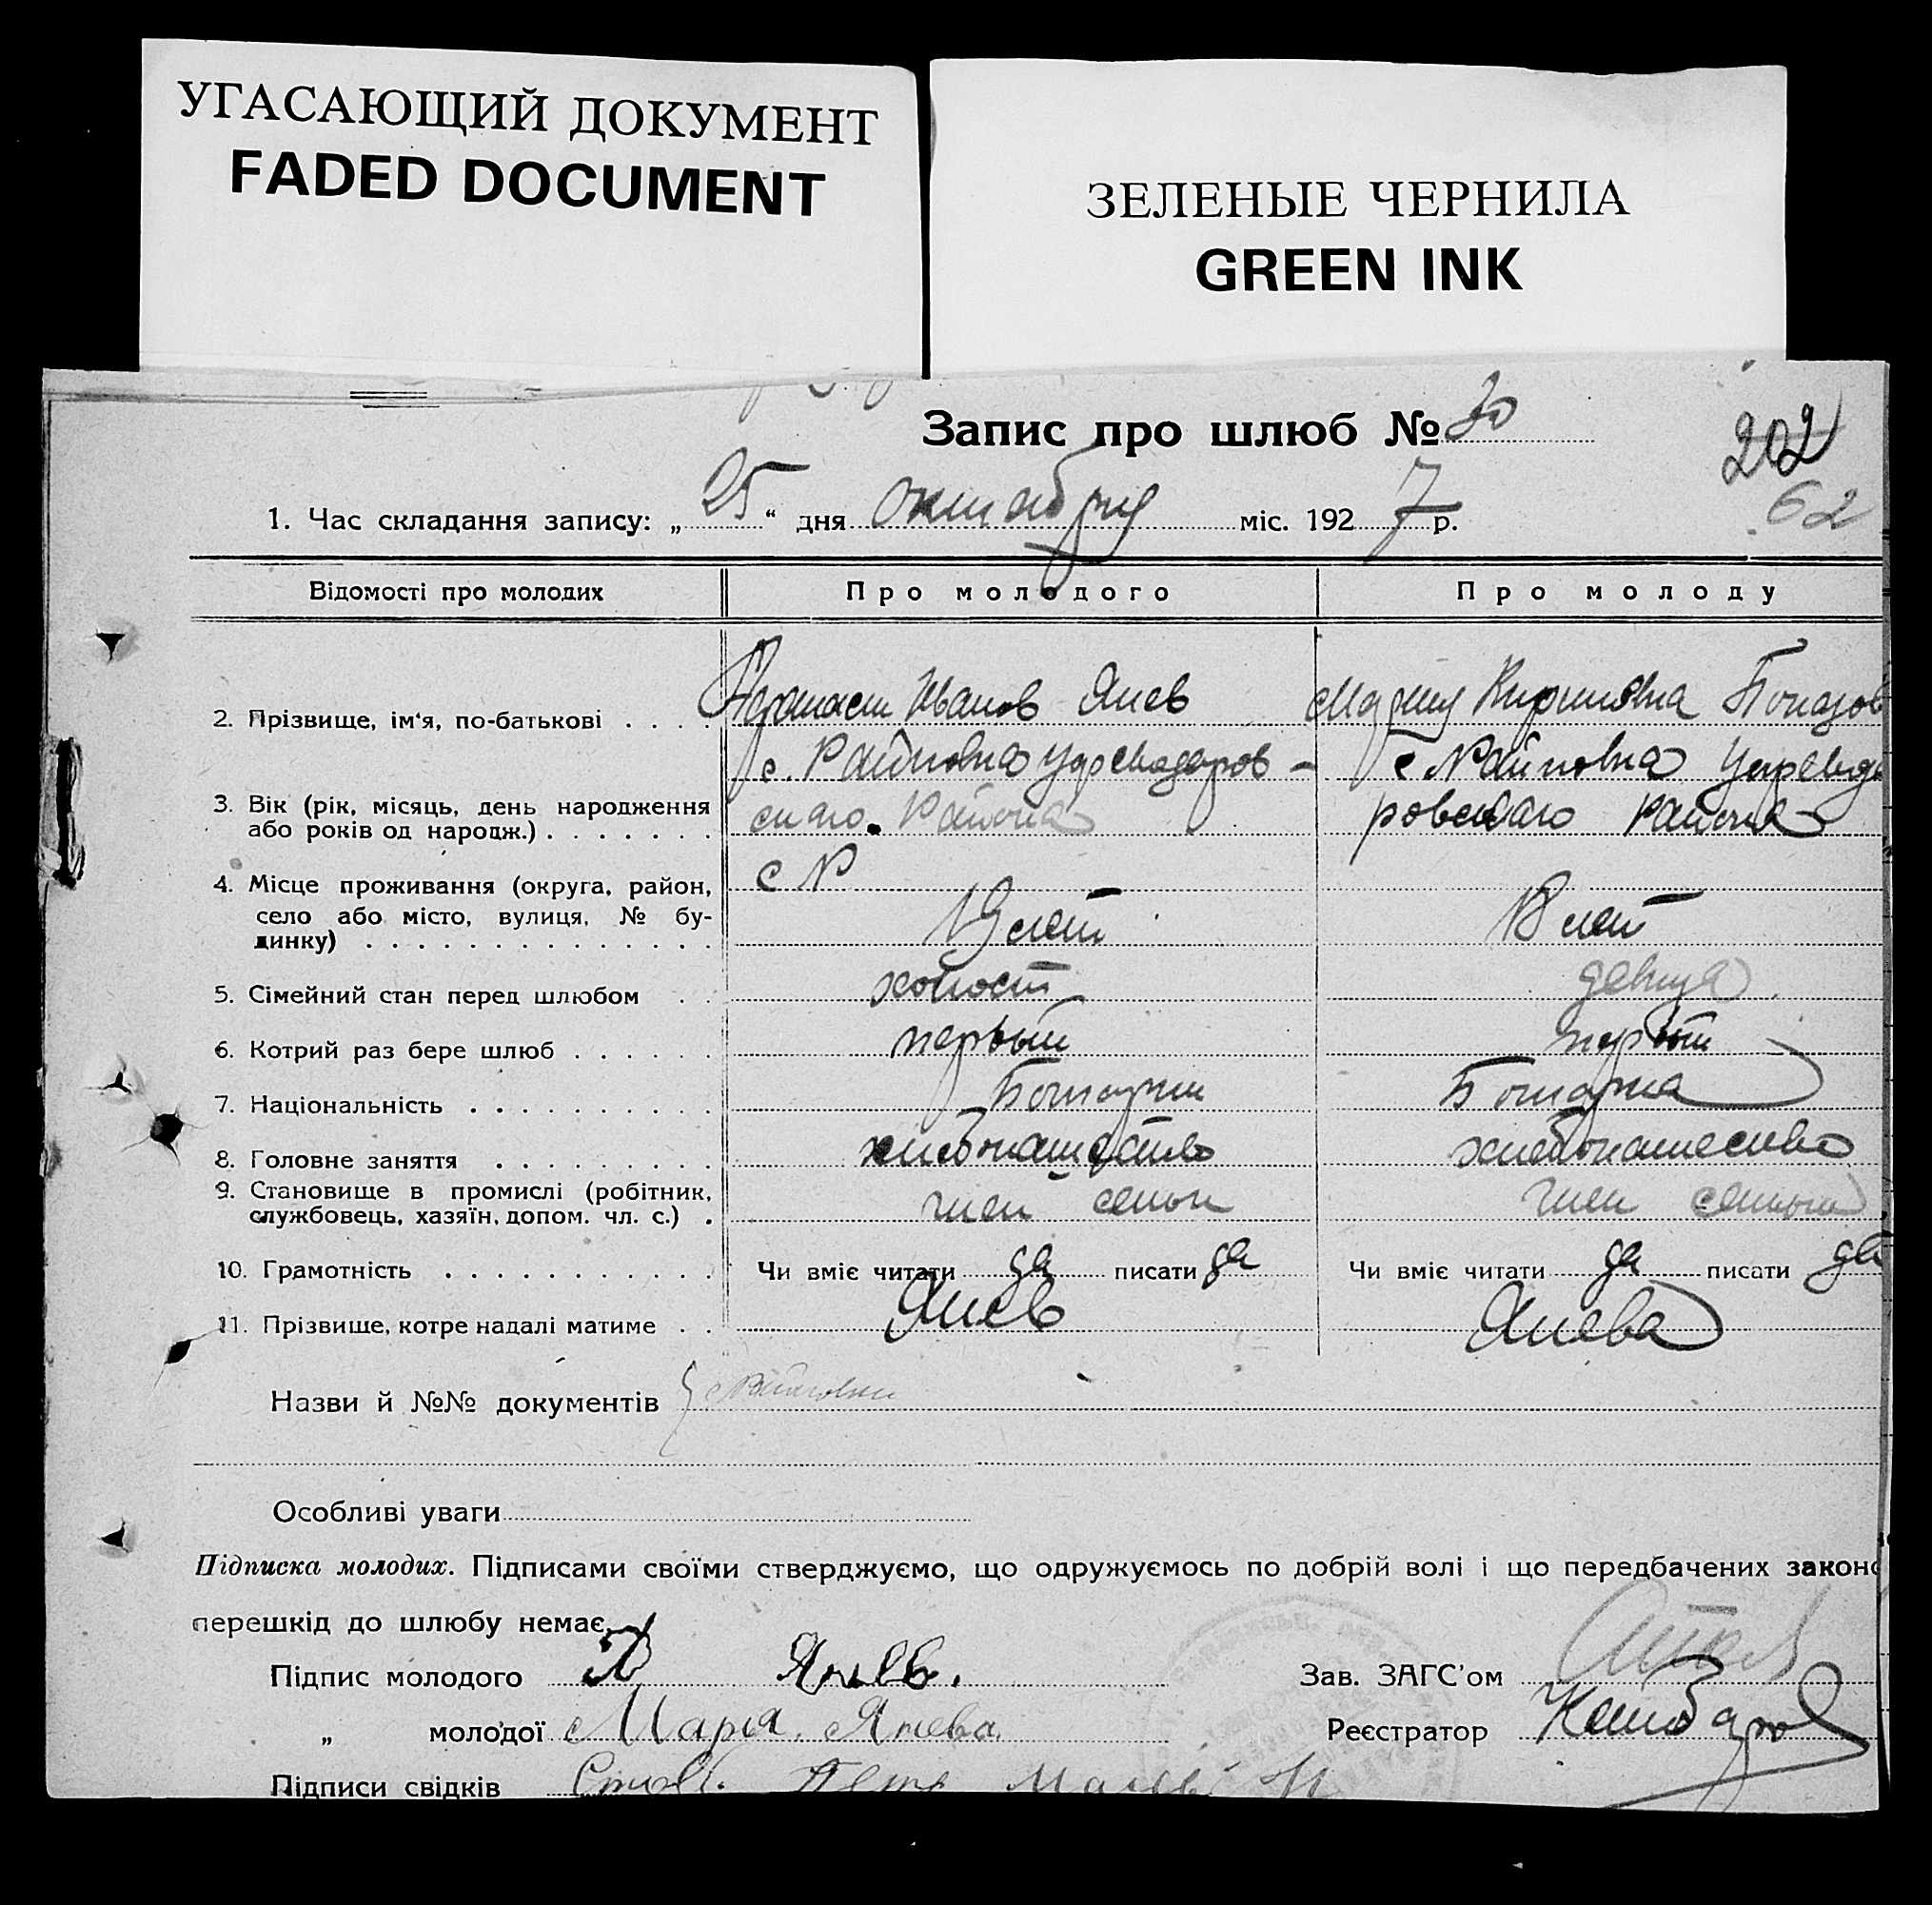 УГАСАЮЩИЙ ДОКУМЕНТ
FADED DOCUMENT
ЗЕЛЕНЫЕ ЧЕРНИЛА
GREEN INK
Запис про шлюб № 30
202
62
1. Час складання запису: „25“ дня октября міс. 1927 р.
Відомості про молодих Про молодого Про молоду
2. Прізвище, ім'я, по-батькові . . . . Афанасий Иванов Янев Мария Кириловна
с. Райновка с Райновка
3. Вік (рік, місяць, день народження
або років од народж.) . . . . . . . скаго Района ровскаго Района
4. Місце проживання (округа, район, с Р
село або місто, вулиця, № бу-
динку) . . . . . . . . . . . . . . 19 лет 18 лет
5. Сімейний стан перед шлюбом . . холост девица
6. Котрий раз бере шлюб . . . . . . первый первый
7. Національність . . . . . . . . . . Болгарин Болгарка
8. Головне заняття . . . . . . . . . хлебопашество хлебопашество
9. Становище в промислі (робітник,
службовець, хазяїн, допом. чл. с.) . член семьи член семьи
10. Грамотність . . . . . . . . . . . Чи вміє читати да писати да Чи вміє читати да писати да
11. Прізвище, котре надалі матиме . . Янев Янева
Назви й №№ документів
Особливі уваги
Підписка молодих. Підписами своїми стверджуємо, що одружуємось по добрій волі і що передбачених законо
перешкід до шлюбу немає.
Підпис молодого А Янев. Зав. ЗАГС'ом
„ молодої Мария Янева. Реєстратор
Підписи свідків Петр